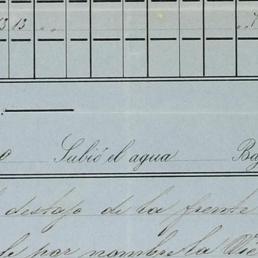 13 13
Subió el agua Ba
destajo de la frente
por nombre la Vie